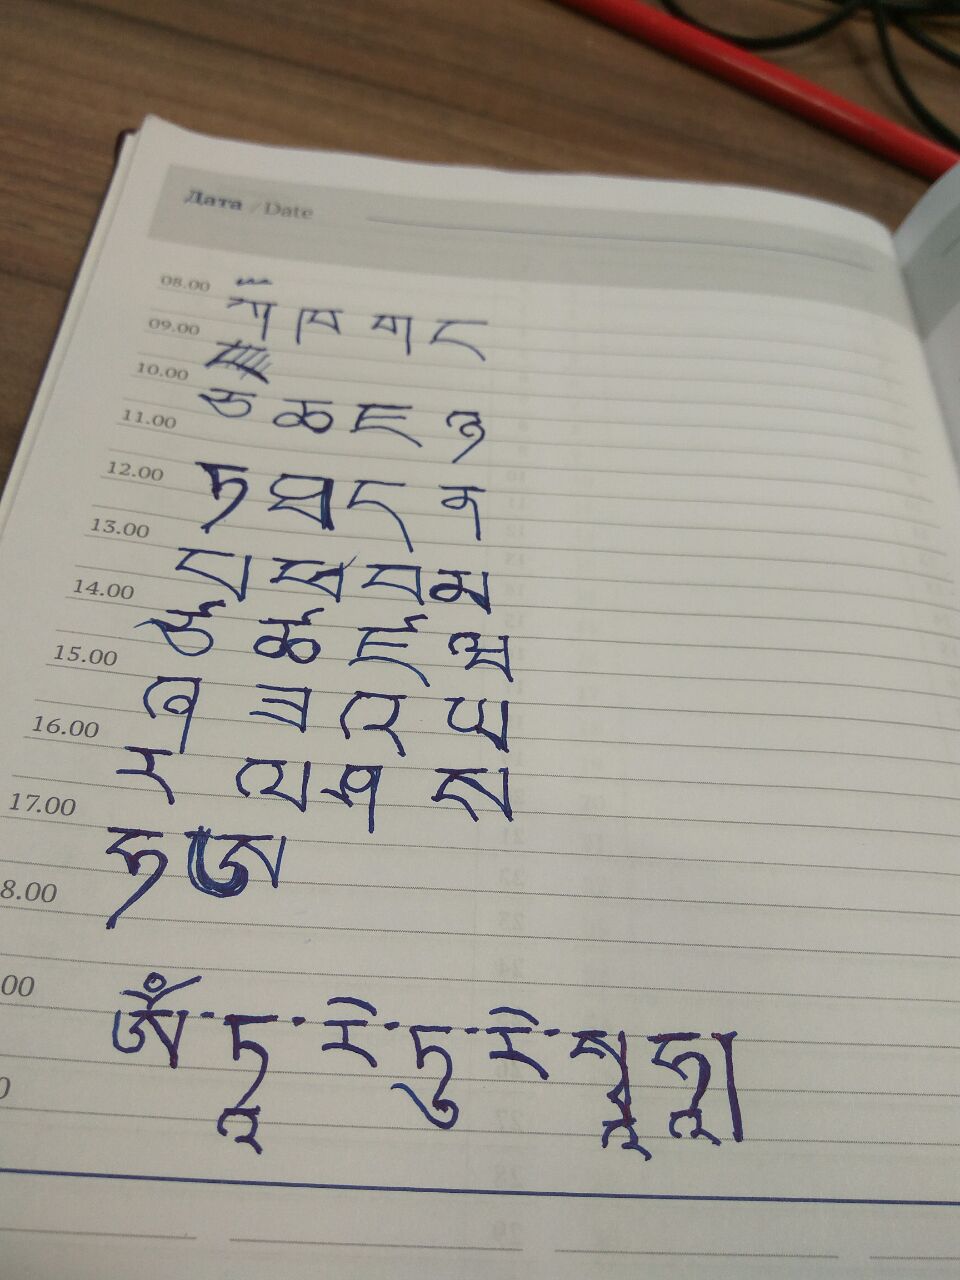 Дата / Date
08.00 ཀ ཁ ག ང
09.00
10.00 ཅ ཆ ཇ ཉ
11.00
12.00 ཏ ཐ ད ན
13.00 པ ཕ བ མ
14.00 ཙ ཚ ཛ ཝ
15.00 ཞ ཟ འ ཡ
16.00 ར ལ ཤ ས
17.00 ཧ ཨ
8.00
00 ཨོཾ་ ་རེ་ཏུ་རེ་
0